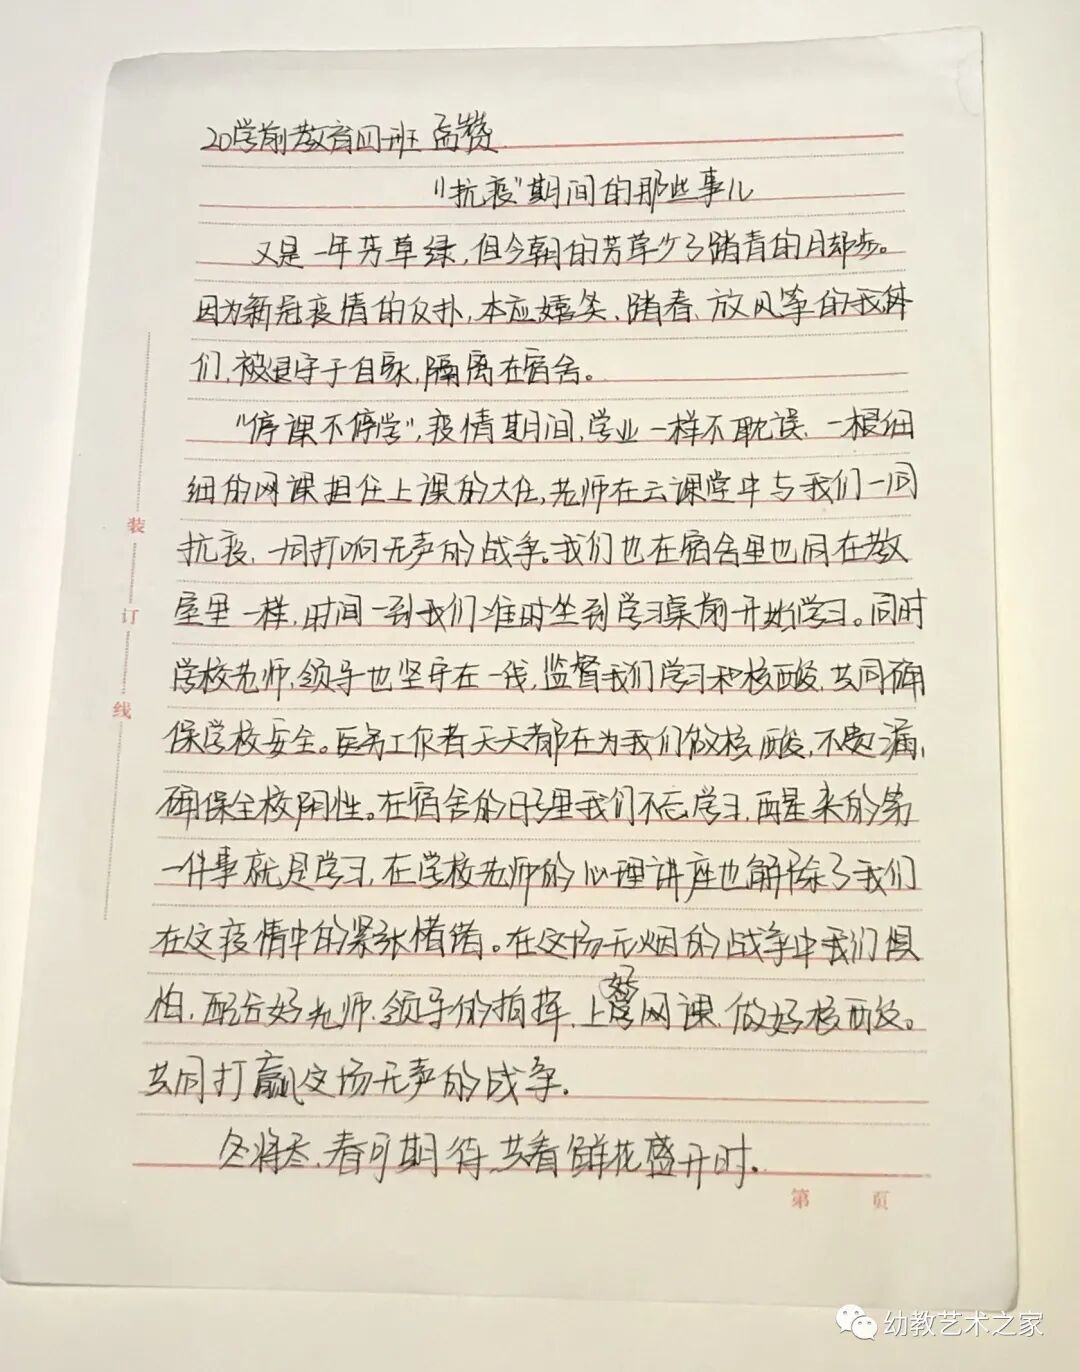 20学前教育四班 孟赞
“抗疫”期间的那些事儿
又是一年芳草绿,但今朝的芳草少了踏青的脚步。
因为新冠疫情的反扑,本应嬉笑、踏春、放风筝的我
们,被退守于自家,隔离在宿舍。
“停课不停学”,疫情期间,学业一样不耽误,一根细
细的网课担任上课的大任,老师在云课堂中与我们一同
抗疫,一同打响无声的战争。我们也在宿舍里也同在教
室里一样,时间一到我们准时坐到学习桌前开始学习。同时
学校老师,领导也坚守在一线,监督我们学习和核酸,共同确
保学校安全。医务工作者天天都在为我们做核酸,不遗漏,
确保全校阴性。在宿舍的日子里我们不忘学习,醒来的第
一件事就是学习,在学校老师的心理讲座也解除了我们
在这疫情中的紧张情绪。在这场无烟的战争中我们惧
怕,配合好老师、领导的指挥,上好网课,做好核酸。
共同打赢这场无声的战争.
冬将尽,春可期待,共看鲜花盛开时.
装
订
线
第 页
幼教艺术之家